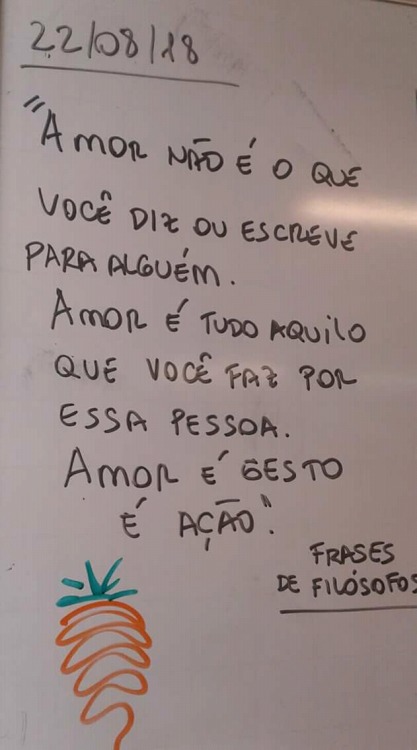 22/08/18
"AMOR NÃO É O QUE
VOCÊ DIZ OU ESCREVE
PARA ALGUÉM.
AMOR É TUDO AQUILO
QUE VOCÊ FAZ POR
ESSA PESSOA.
AMOR É GESTO
É AÇÃO".
FRASES
DE FILÓSOFOS